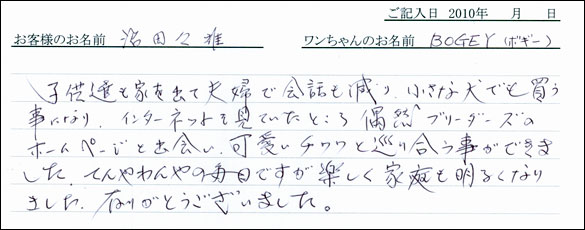 ご記入日 2010年　月　日
お客様のお名前　沼田久雄　ワンちゃんのお名前　BOGEY(ボギー)
子供達も家を出て夫婦で会話も減り、小さな犬でも買う
事になり、インターネットを見ていたところ偶然ブリーダーズの
ホームページと出会い、可愛いチワワと巡り合う事ができま
した。てんやわんやの毎日ですが楽しく家庭も明るくなり
ました。ありがとうございました。